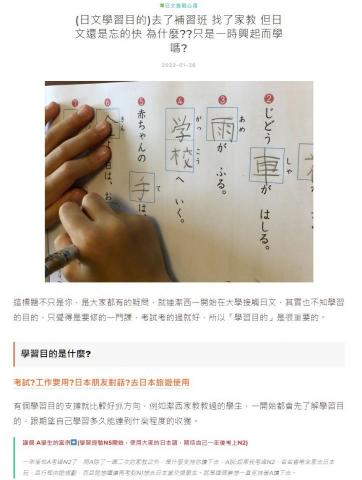 日文養戰心得
(日文學習目的)去了補習班 找了家教 但日
文還是忘的快 為什麼??只是一時興起而學
嗎?
2022-01-26
② じどう車が はしる。
しゃ
③ 雨が ふる。
あめ
④ 学校へ いく。
がっこう
⑤ 赤ちゃんの 手は、
て
⑥
きん
⑦
這標題不只是你，是大家都有的疑問，就連潔西一開始在大學接觸日文，其實也不知學習
的目的，只覺得是要修的一門課，考試考的過就好，所以「學習目的」是很重要的。
學習目的是什麼?
考試?工作要用?日本朋友對話?去日本旅遊使用
有個學習目的支撐就比較好抓方向，例如潔西家教教過的學生，一開始都會先了解學習目
的，跟期望自己學習多久能達到什麼程度的收獲。
讓個 A學生的案例➡(學習經驗N5開始，使用大家的日本語，期待自己一年後考上N2)